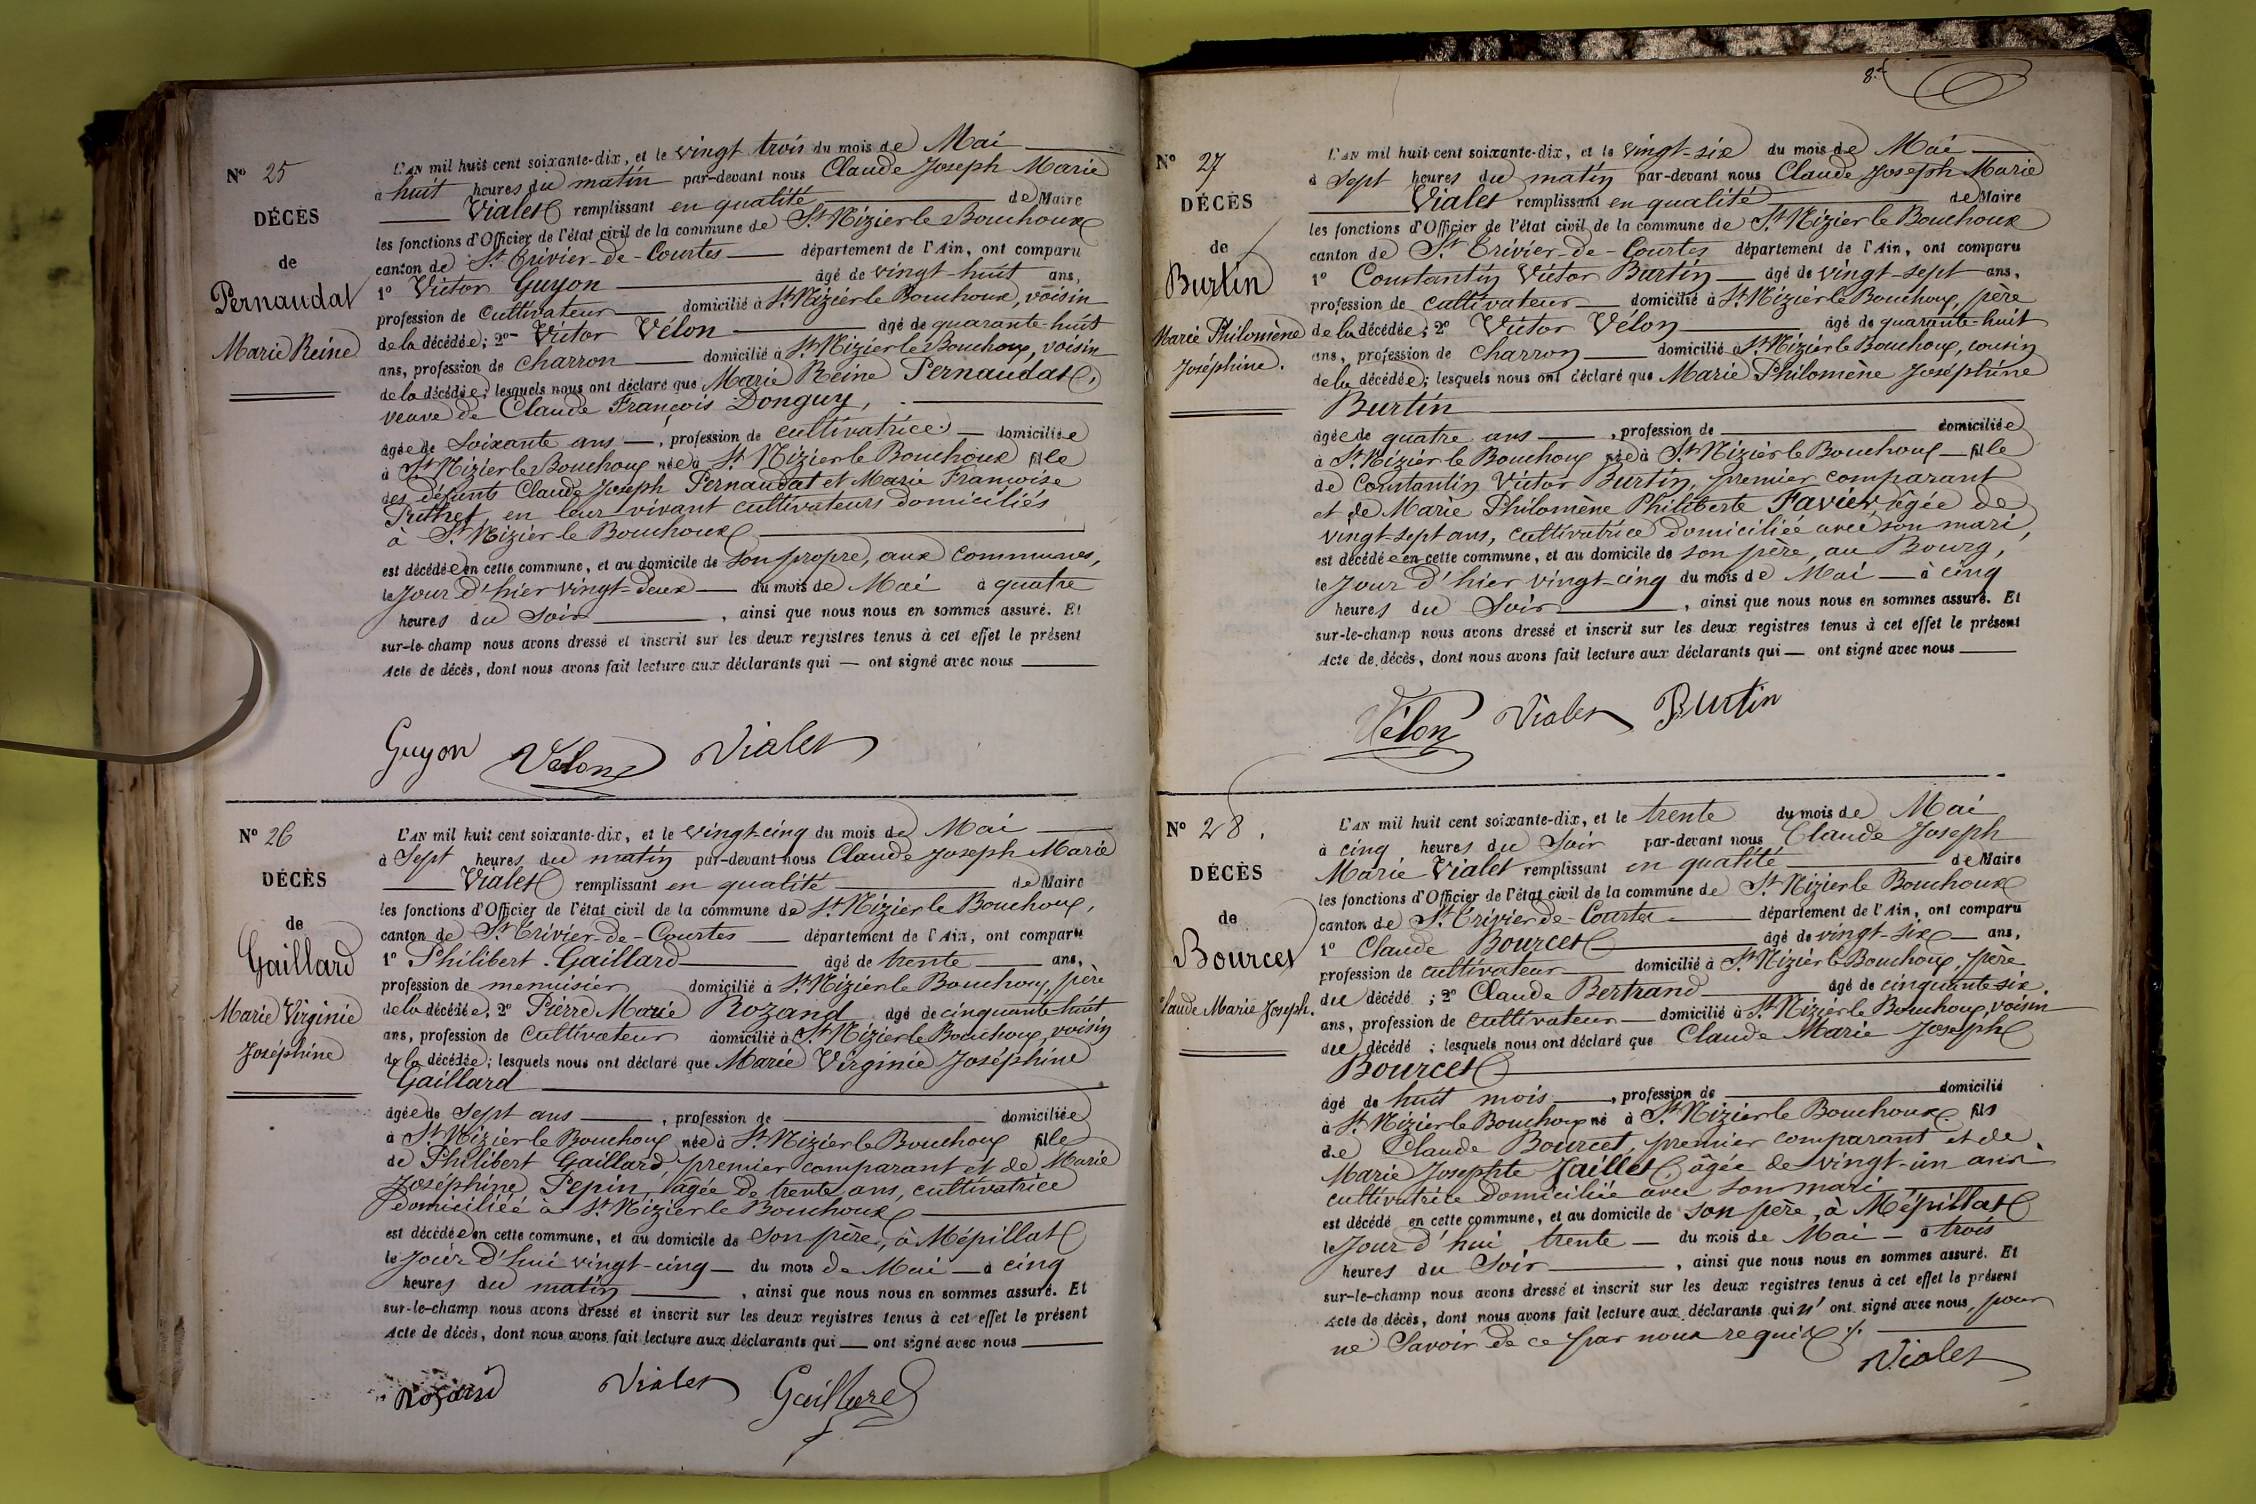 Nº 25
DÉCÈS
de
Pernaudat
Marie Reine
L'AN mil huit cent soixante-dix, et le vingt trois du mois de Mai
à huit heures du matin par-devant nous Claude Joseph Marie
Vialet remplissant en qualité de Maire
les fonctions d'Officier de l'état civil de la commune de St Nizier le Bouchoux
canton de St Trivier-de-Courtes département de l'Ain, ont comparu
1º Victor Guyon âgé de vingt-huit ans,
profession de cultivateur domicilié à St Nizier le Bouchoux, voisin
de la décédée; 2º Victor Vélon âgé de quarante-huit
ans, profession de charron domicilié à St Nizier le Bouchoux, voisin
de la décédée; lesquels nous ont déclaré que Marie Reine Pernaudat,
veuve de Claude François Donguy,
âgée de soixante ans, profession de cultivatrice domiciliée
à St Nizier le Bouchoux née à St Nizier le Bouchoux fille
des défunts Claude Joseph Pernaudat et Marie Françoise
Puthet, en leur vivant cultivateurs domiciliés
à St Nizier le Bouchoux
est décédée en cette commune, et au domicile de son propre, aux communes,
le jour d'hier vingt-deux du mois de Mai à quatre
heures du soir, ainsi que nous nous en sommes assuré. Et
sur-le-champ nous avons dressé et inscrit sur les deux registres tenus à cet effet le présent
Acte de décès, dont nous avons fait lecture aux déclarants qui — ont signé avec nous
Guyon Vélon Vialet
Nº 26
DÉCÈS
de
Gaillard
Marie Virginie
Joséphine
L'AN mil huit cent soixante-dix, et le vingt-cinq du mois de Mai
à sept heures du matin par-devant nous Claude Joseph Marie
Vialet remplissant en qualité de Maire
les fonctions d'Officier de l'état civil de la commune de St Nizier le Bouchoux,
canton de St Trivier-de-Courtes département de l'Ain, ont comparu
1º Philibert Gaillard âgé de trente ans,
profession de menuisier domicilié à St Nizier le Bouchoux, père
de la décédée, 2º Pierre Marie Rozand âgé de cinquante-huit
ans, profession de cultivateur domicilié à St Nizier le Bouchoux, voisin
de la décédée; lesquels nous ont déclaré que Marie Virginie Joséphine
Gaillard
âgée de sept ans, profession de domiciliée
à St Nizier le Bouchoux née à St Nizier le Bouchoux fille
de Philibert Gaillard, premier comparant et de Marie
Joséphine Pepin, âgée de trente ans, cultivatrice
domiciliée à St Nizier le Bouchoux
est décédée en cette commune, et au domicile de son père, à Mépillat
le jour d'hui vingt-cinq du mois de Mai à cinq
heures du matin, ainsi que nous nous en sommes assuré. Et
sur-le-champ nous avons dressé et inscrit sur les deux registres tenus à cet effet le présent
Acte de décès, dont nous avons fait lecture aux déclarants qui — ont signé avec nous
Rozand Vialet Gaillard
Nº 27
DÉCÈS
de
Burtin
Marie Philomène
Joséphine.
L'AN mil huit cent soixante-dix, et le vingt-six du mois de Mai
à sept heures du matin par-devant nous Claude Joseph Marie
Vialet remplissant en qualité de Maire
les fonctions d'Officier de l'état civil de la commune de St Nizier le Bouchoux
canton de St Trivier-de-Courtes département de l'Ain, ont comparu
1º Constantin Victor Burtin âgé de vingt-sept ans,
profession de cultivateur domicilié à St Nizier le Bouchoux, père
de la décédée; 2º Victor Vélon âgé de quarante-huit
ans, profession de charron domicilié à St Nizier le Bouchoux, cousin
de la décédée; lesquels nous ont déclaré que Marie Philomène Joséphine
Burtin
âgée de quatre ans, profession de domiciliée
à St Nizier le Bouchoux née à St Nizier le Bouchoux fille
de Constantin Victor Burtin, premier comparant
et de Marie Philomène Philiberte Favier, âgée de
vingt-sept ans, cultivatrice domiciliée avec son mari,
est décédée en cette commune, et au domicile de son père, au Bourg,
le jour d'hier vingt-cinq du mois de Mai à cinq
heures du soir, ainsi que nous nous en sommes assuré. Et
sur-le-champ nous avons dressé et inscrit sur les deux registres tenus à cet effet le présent
Acte de décès, dont nous avons fait lecture aux déclarants qui — ont signé avec nous
Vélon Vialet Burtin
Nº 28.
DÉCÈS
de
Bourcet
Claude Marie Joseph.
L'AN mil huit cent soixante-dix, et le trente du mois de Mai
à cinq heures du soir par-devant nous Claude Joseph
Marie Vialet remplissant en qualité de Maire
les fonctions d'Officier de l'état civil de la commune de St Nizier le Bouchoux
canton de St Trivier-de-Courtes département de l'Ain, ont comparu
1º Claude Bourcet âgé de vingt-six ans,
profession de cultivateur domicilié à St Nizier le Bouchoux, père
du décédé; 2º Claude Bertrand âgé de cinquante-six
ans, profession de cultivateur domicilié à St Nizier le Bouchoux, voisin
du décédé; lesquels nous ont déclaré que Claude Marie Joseph
Bourcet
âgé de huit mois, profession de domicilié
à St Nizier le Bouchoux né à St Nizier le Bouchoux fils
de Claude Bourcet, premier comparant et de
Marie Josephte Jaillet âgée de vingt-un ans
cultivatrice domiciliée avec son mari
est décédé en cette commune, et au domicile de son père, à Mépillat
le jour d'hui trente du mois de Mai à trois
heures du soir, ainsi que nous nous en sommes assuré. Et
sur-le-champ nous avons dressé et inscrit sur les deux registres tenus à cet effet le présent
Acte de décès, dont nous avons fait lecture aux déclarants qui n'ont signé avec nous, pour
ne savoir de ce par nous requis.
Vialet